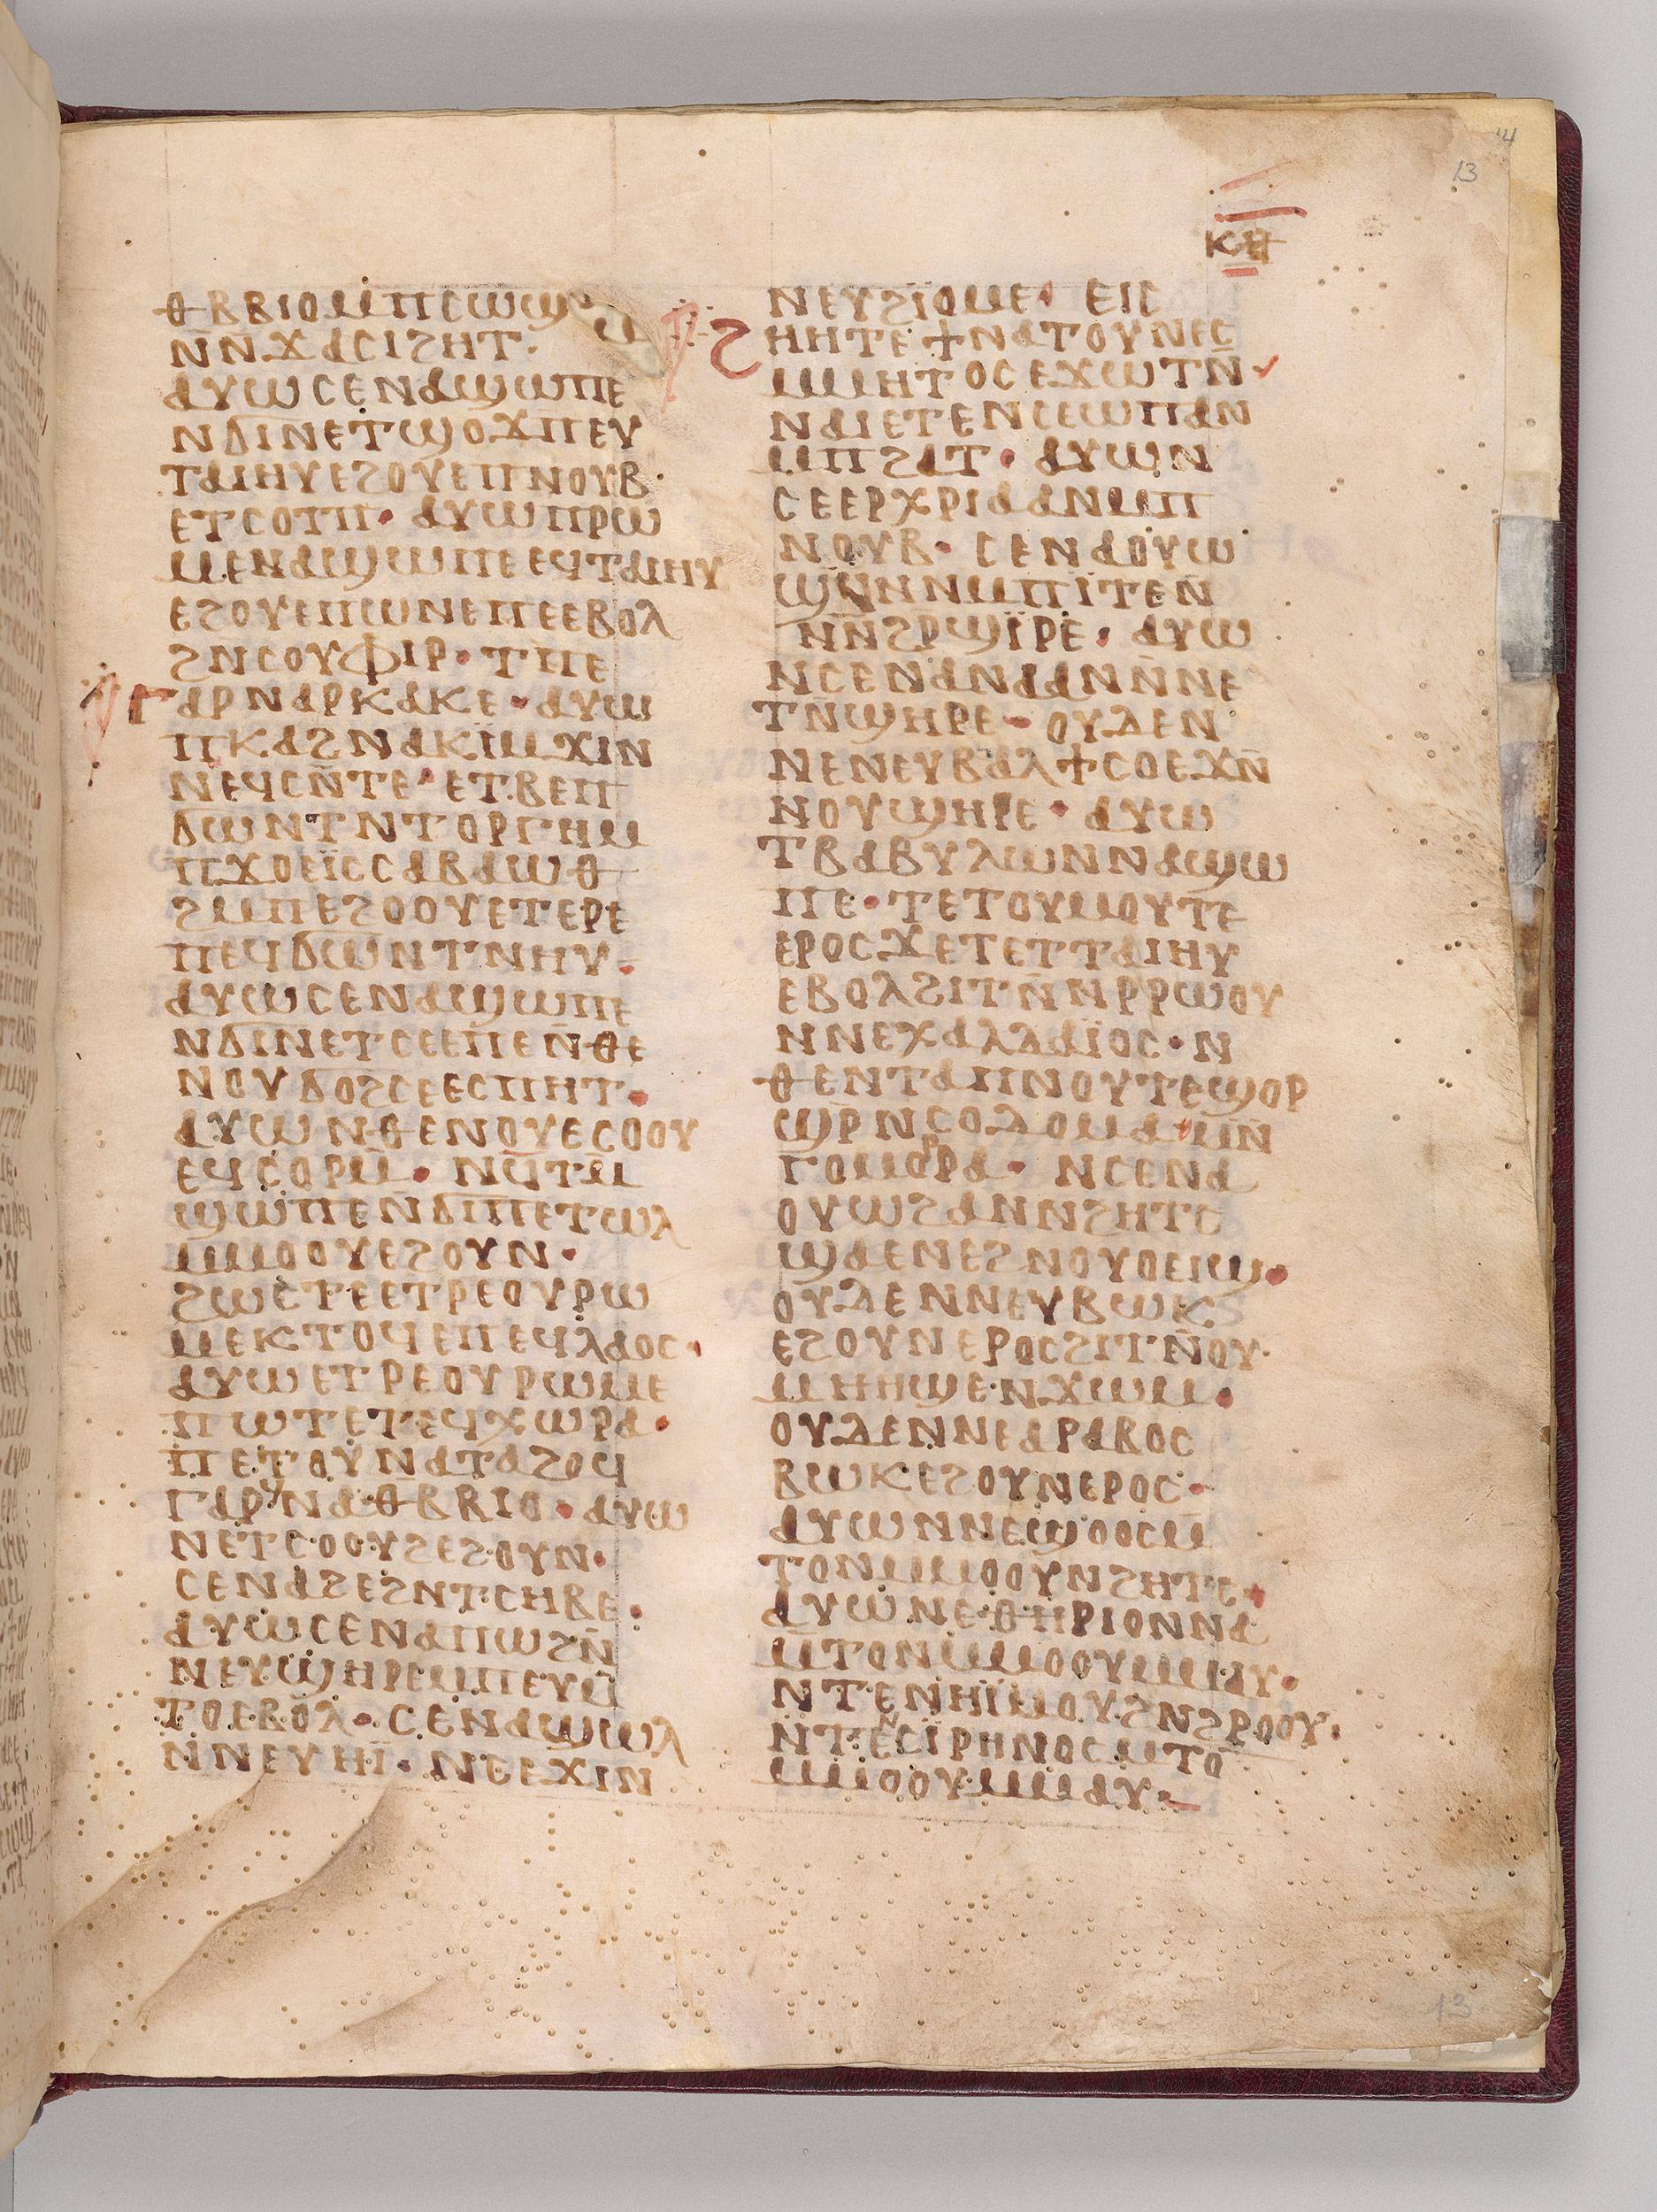 14
13
ⲑⲃⲃⲓⲟⲙⲡⲥⲱϣ
ⲛ̄ⲛ̄ϫⲁⲥⲓϩⲏⲧ·
ⲁⲩⲱⲥⲉⲛⲁϣⲱⲡⲉ
ⲛϭⲓⲛⲉⲧϣⲟϫⲡⲉⲩ
ⲧⲁⲓⲏⲩⲉϩⲟⲩⲉⲡⲛⲟⲩⲃ·
ⲉⲧⲥⲟⲧⲡ· ⲁⲩⲱⲡⲣⲱ
ⲙⲉⲛⲁϣⲱⲡⲉⲉϥⲧⲁⲓⲏⲩ
ⲉϩⲟⲩⲉⲡⲱⲛⲉⲡⲉⲉⲃⲟⲗ
ϩⲛⲥⲟⲩⲫⲓⲣ· ⲧⲡⲉ
ⲅⲁⲣⲛⲁⲣⲕⲁⲕⲉ· ⲁⲩⲱ
ⲡⲕⲁϩⲛⲁⲕⲓ̈ⲙϫⲓⲛ
ⲛⲉϥⲥⲛ̄ⲧⲉ· ⲉⲧⲃⲉⲡ
ϭⲱⲛⲧⲛⲧⲟⲣⲅⲏⲙ
ⲡϫⲟⲉⲓ̈ⲥⲥⲁⲃⲁⲱⲑ
ϩⲙⲡⲉϩⲟⲟⲩⲉⲧⲉⲣⲉ
ⲡⲉϥϭⲱⲛⲧⲛⲏⲩ·
ⲁⲩⲱⲥⲉⲛⲁϣⲱⲡⲉ
ⲛϭⲓⲛⲉⲧⲥⲉⲉⲡⲉⲛ̄ⲑⲉ
ⲛⲟⲩϭⲟϩⲥⲉⲉⲥⲡⲏⲧ·
ⲁⲩⲱⲛⲑⲉⲛⲟⲩⲉⲥⲟⲟⲩ
ⲉϥⲥⲟⲣⲙ̄· ⲛϥ̄ⲧⲙ̄
ϣⲱⲡⲉⲛϭⲓⲡⲉⲧⲱⲗ
ⲙⲙⲟⲟⲩⲉϩⲟⲩⲛ·
ϩⲱⲥⲧⲉⲉⲧⲣⲉⲟⲩⲣⲱ
ⲙⲉⲕⲧⲟϥⲉⲡⲉϥⲗⲁⲟⲥ·
ⲁⲩⲱⲉⲧⲣⲉⲟⲩⲣⲱⲙⲉ
ⲡⲱⲧⲉⲧⲉϥⲭⲱⲣⲁ·
ⲡⲉⲧⲟⲩⲛⲁⲧⲁϩⲟϥ
ⲅⲁⲣϥⲛⲁⲑⲃⲃⲓⲟ· ⲁⲩⲱ
ⲛⲉⲧⲥⲟⲟⲩϩⲉϩⲟⲩⲛ·
ⲥⲉⲛⲁϩⲉϩⲛⲧⲥⲏⲃⲉ·
ⲁⲩⲱⲥⲉⲛⲁⲡⲱϩⲛ̄
ⲛⲉⲩϣⲏⲣⲉⲙⲡⲉⲩⲙ̄
ⲧⲟⲉⲃⲟⲗ· ⲥⲉⲛⲁϣⲱⲗ
ⲛⲛⲉⲩⲏⲓ̈· ⲛⲥⲉϫⲓⲛ
ⲛⲉⲩϩⲓ̈ⲟⲙⲉ· ⲉⲓⲥ
ϩⲏⲏⲧⲉϯⲛⲁⲧⲟⲩⲛⲉⲥ
ⲙⲙⲏⲧⲟⲥⲉϫⲱⲧⲛ̄·
ⲛⲁⲓⲉⲧⲉⲛⲥⲉⲱⲡⲁⲛ
ⲙⲡϩⲁⲧ· ⲁⲩⲱⲛ
ⲥⲉⲉⲣⲭⲣⲓⲁⲁⲛⲙⲡ
ⲛⲟⲩⲃ· ⲥⲉⲛⲁⲟⲩⲱ
ϣϥⲛⲛⲙⲡⲓ̈ⲧⲉⲛ̄
ⲛⲛ̄ϩⲣϣⲓ̈ⲣⲉ· ⲁⲩⲱ
ⲛⲥⲉⲛⲁⲛⲁⲁⲛⲛⲛⲉ
ⲧⲛϣⲏⲣⲉ· ⲟⲩⲇⲉⲛ
ⲛⲉⲛⲉⲩⲃⲁⲗϯⲥⲟⲉϫⲛ̄
ⲛⲟⲩϣⲏⲣⲉ· ⲁⲩⲱ
ⲧⲃⲁⲃⲩⲗⲱⲛⲛⲁϣⲱ
ⲡⲉ· ⲧⲉⲧⲟⲩⲙⲟⲩⲧⲉ
ⲉⲣⲟⲥϫⲉⲧⲉⲧⲧⲁⲓⲏⲩ
ⲉⲃⲟⲗϩⲓⲧⲛ̄ⲛⲣⲣⲱⲟⲩ
ⲛⲛⲉⲭⲁⲗⲇⲁⲓ̈ⲟⲥ· ⲛ
ⲑⲉⲛⲧⲁⲡⲛⲟⲩⲧⲉϣⲟⲣ
ϣⲣ̄ⲛⲥⲟⲇⲟⲙⲁ·ⲙⲛ̄
ⲅⲟⲙⲟⲣⲣⲁ· ⲛⲥⲉⲛⲁ
ⲟⲩⲱϩⲁⲛⲛϩⲏⲧⲥ
ϣⲁⲉⲛⲉϩⲛⲟⲩⲟⲉⲓϣ·
ⲟⲩⲇⲉⲛⲛⲉⲩⲃⲱⲕ
ⲉϩⲟⲩⲛⲉⲣⲟⲥϩⲓⲧⲛ̄ⲟⲩ
ⲙⲏⲏϣⲉⲛϫⲱⲙ·
ⲟⲩⲇⲉⲛⲛⲉⲁⲣⲁⲃⲟⲥ
ⲃⲱⲕⲉϩⲟⲩⲛⲉⲣⲟⲥ·
ⲁⲩⲱⲛⲛⲉϣⲟⲟⲥⲙ̄
ⲧⲟⲛⲙⲙⲟⲟⲩⲛϩⲏⲧⲥ·
ⲁⲩⲱⲛⲉⲑⲏⲣⲓⲟⲛⲛⲁ
ⲙ̄ⲧⲟⲛⲙⲙⲟⲟⲩⲙⲙⲁⲩ·
ⲛⲧⲉⲛⲏⲓ̈ⲙⲟⲩϩⲛϩⲣⲟⲟⲩ·
ⲛⲧⲉⲛⲥⲓ̈ⲣⲏⲛⲟⲥⲙⲧⲟ̄
ⲙⲙⲟⲟⲩⲙⲙⲁⲩ·
13